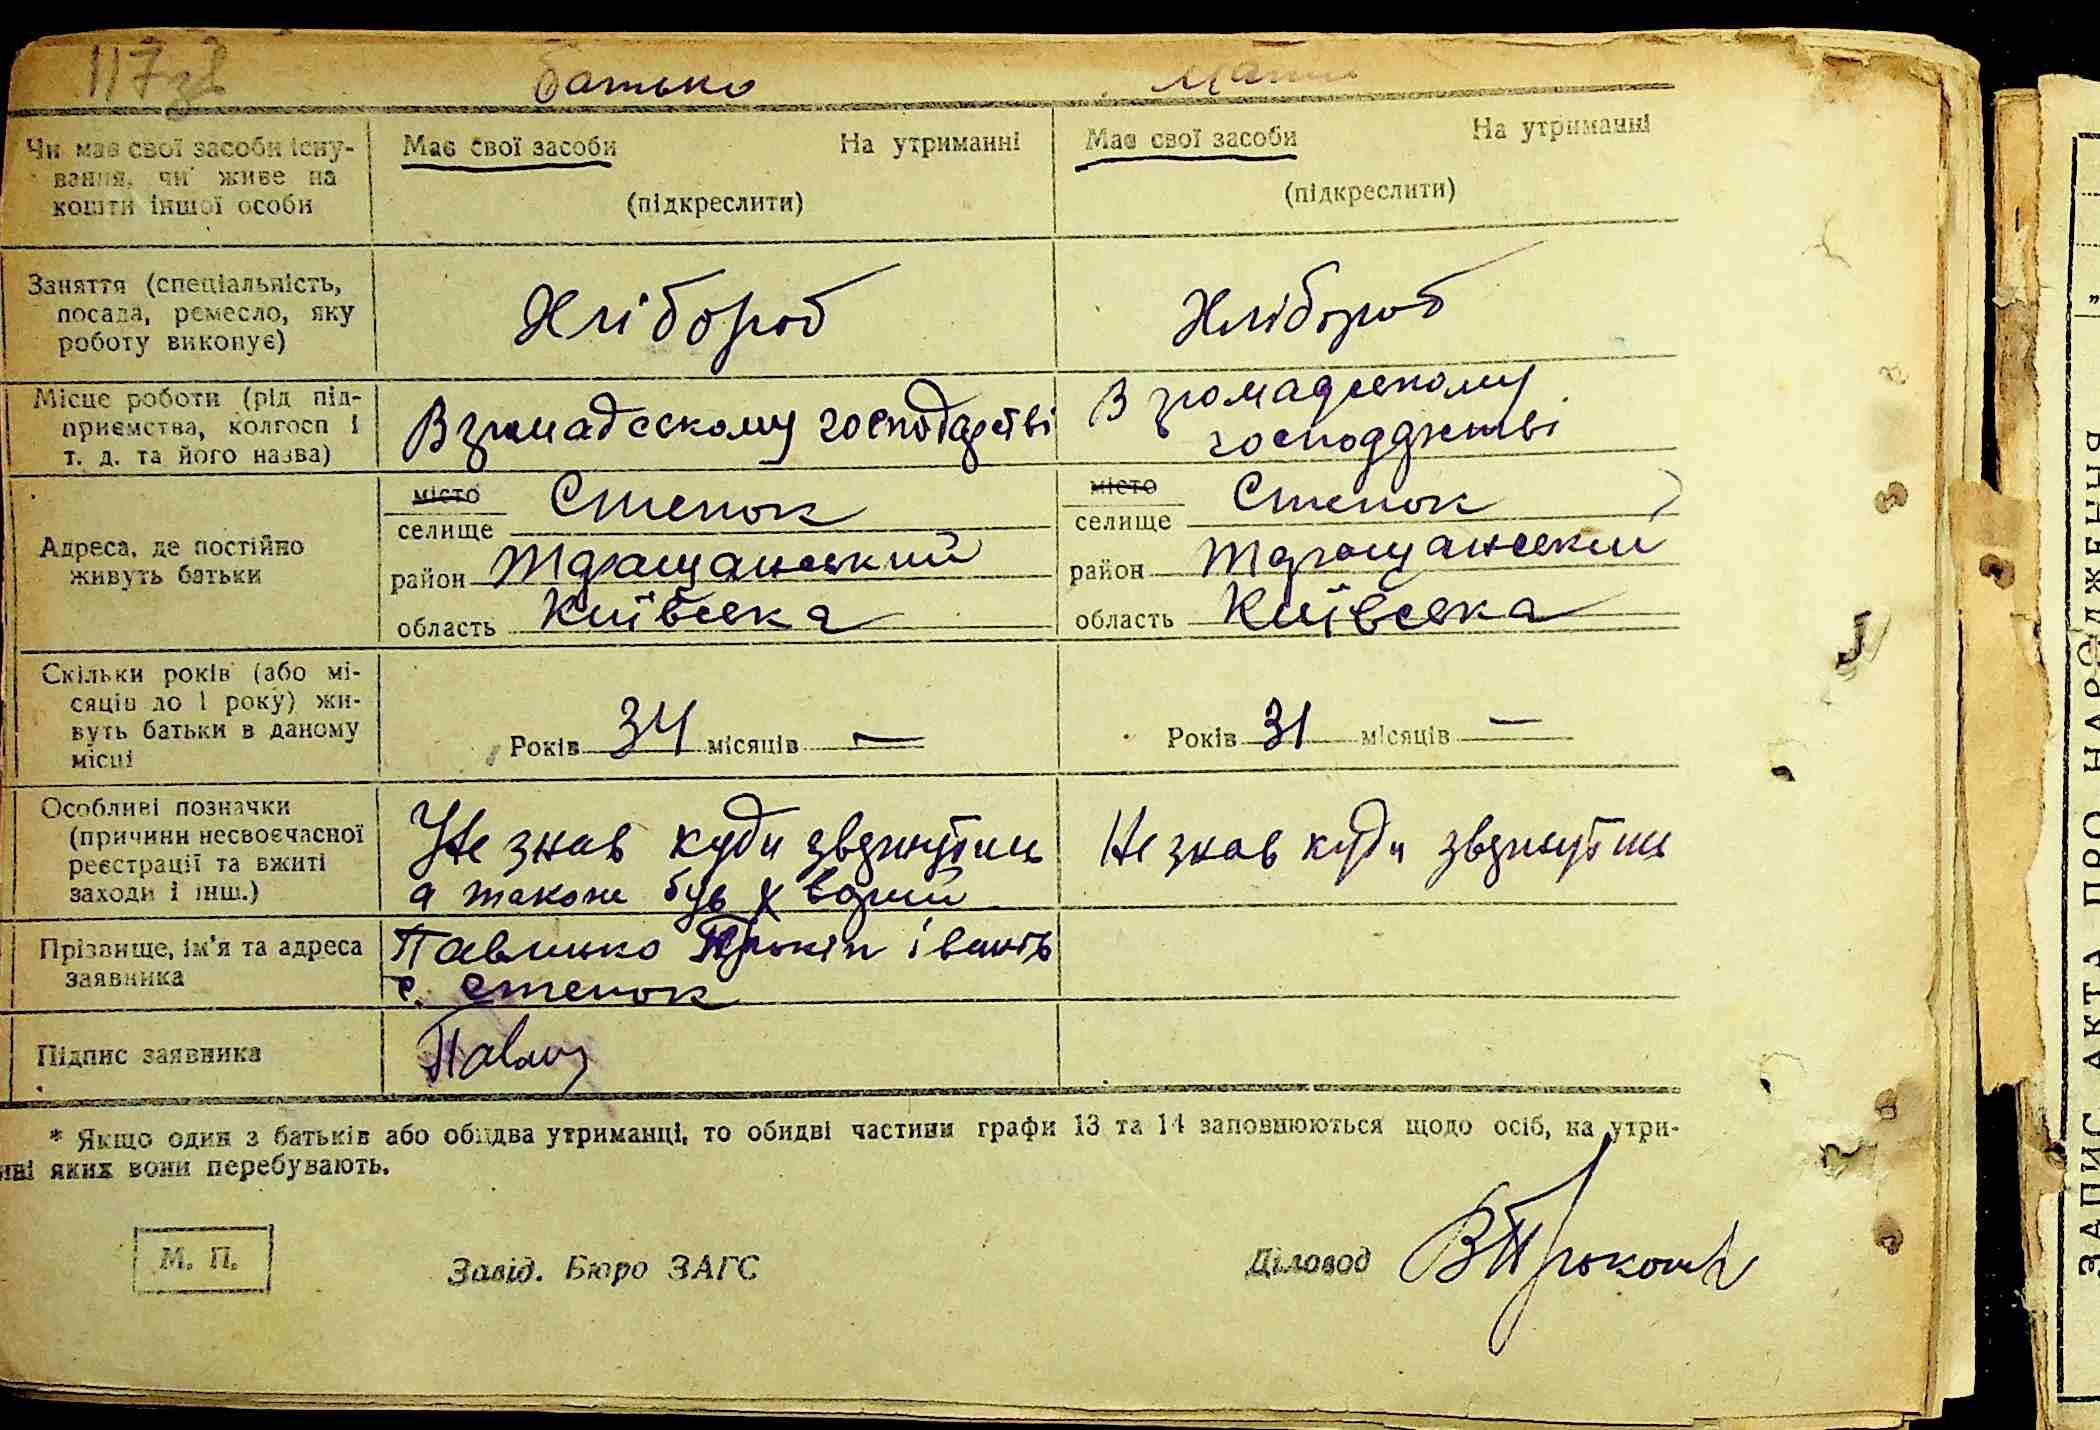 117зв
батько мати
Чи має свої засоби існу- Має свої засоби На утриманні Має свої засоби На утриманні
вання, чи живе на
кошти іншої особи (підкреслити) (підкреслити)
Заняття (спеціальність,
посада, ремесло, яку Хлібороб Хлібороб
роботу виконує)
Місце роботи (рід під- В громадському
приємства, колгосп і В громадському господарстві господарстві
т. д. та його назва)
місто Степок місто Степок
селище селище
Адреса, де постійно
живуть батьки район Тараща́нський район Таращанський
область Київська область Київська
Скільки років (або мі-
сяців до 1 року) жи-
вуть батьки в даному Років 34 місяців — Років 31 місяців —
місці
Особливі позначки
(причини несвоєчасної Не знав куди звернутись Не знав куди звернутись
реєстрації та вжиті
заходи і інш.) а також був хворий
Прізвище, ім'я та адреса Павлико Прокіп
заявника с. Степок
Підпис заявника
* Якщо один з батьків або обидва утриманці, то обидві частини графи 13 та 14 заповнюються щодо осіб, на утри-
нні яких вони перебувають.
М. П. Завід. Бюро ЗАГС Діловод
ЗАПИС АКТА ПРО НАРОДЖЕННЯ